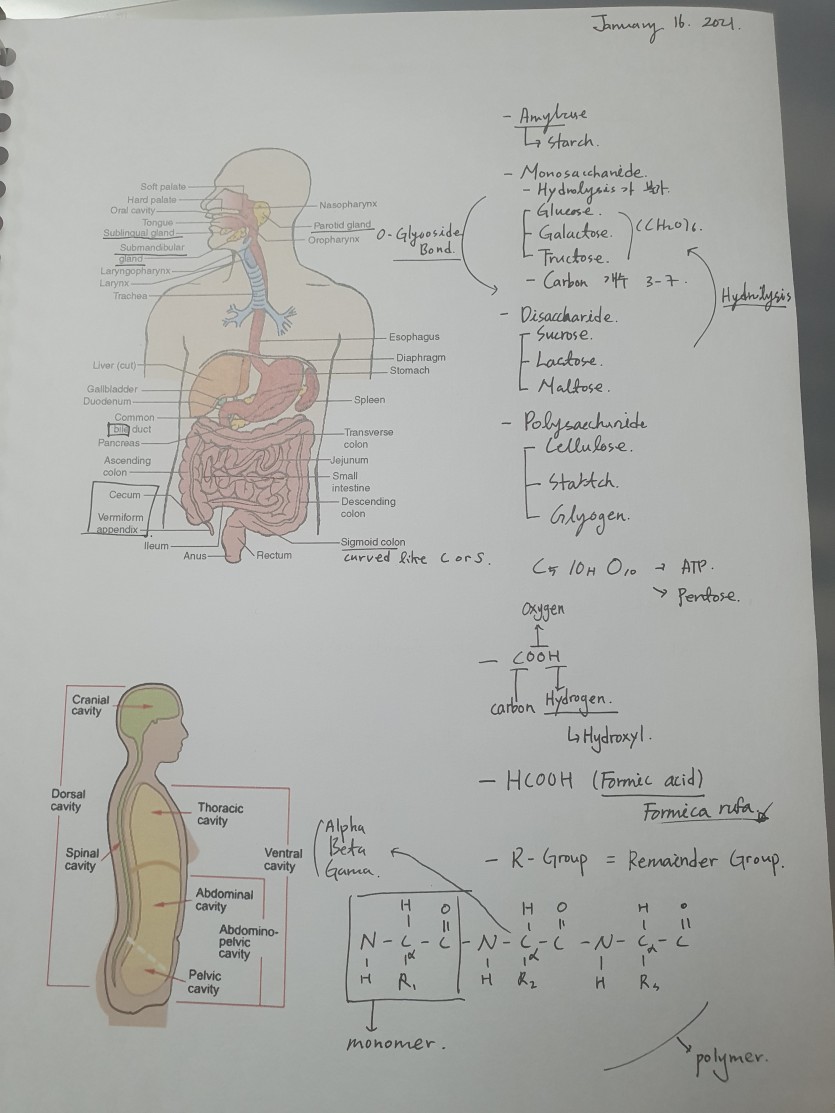 January 16. 2021.
Soft palate
Hard palate
Oral cavity
Tongue
Sublingual gland
Submandibular
gland
Laryngopharynx
Larynx
Trachea
Nasopharynx
Parotid gland
Oropharynx
Esophagus
Diaphragm
Stomach
Liver (cut)
Gallbladder
Duodenum
Spleen
Common
bile duct
Pancreas
Transverse
colon
Ascending
colon
Jejunum
Small
intestine
Cecum
Descending
colon
Vermiform
appendix
Sigmoid colon
curved like C or S.
Ileum
Anus
Rectum
- Amylase
↳ Starch.
- Monosaccharide.
- Hydrolysis
Glucose.
Galactose.
Fructose.
(CH2O)6.
- Carbon 3-7.
O-Glycoside
Bond.
Hydrolysis
- Disaccharide.
Sucrose.
Lactose.
Maltose.
- Polysaccharide
Cellulose.
Statch.
Glyogen.
C5 10H O10 → ATP.
↘ Pentose.
Oxygen
- COOH
carbon Hydrogen.
↳ Hydroxyl.
- HCOOH (Formic acid)
Formica rufa
- R-Group = Remainder Group.
Cranial
cavity
Dorsal
cavity
Spinal
cavity
Thoracic
cavity
Ventral
cavity
Abdominal
cavity
Abdomino-
pelvic
cavity
Pelvic
cavity
Alpha
Beta
Gama.
H O H O H O
N - C - C - N - C - C - N - Cα - C
α α
H R1 H R2 H R3
monomer.
polymer.